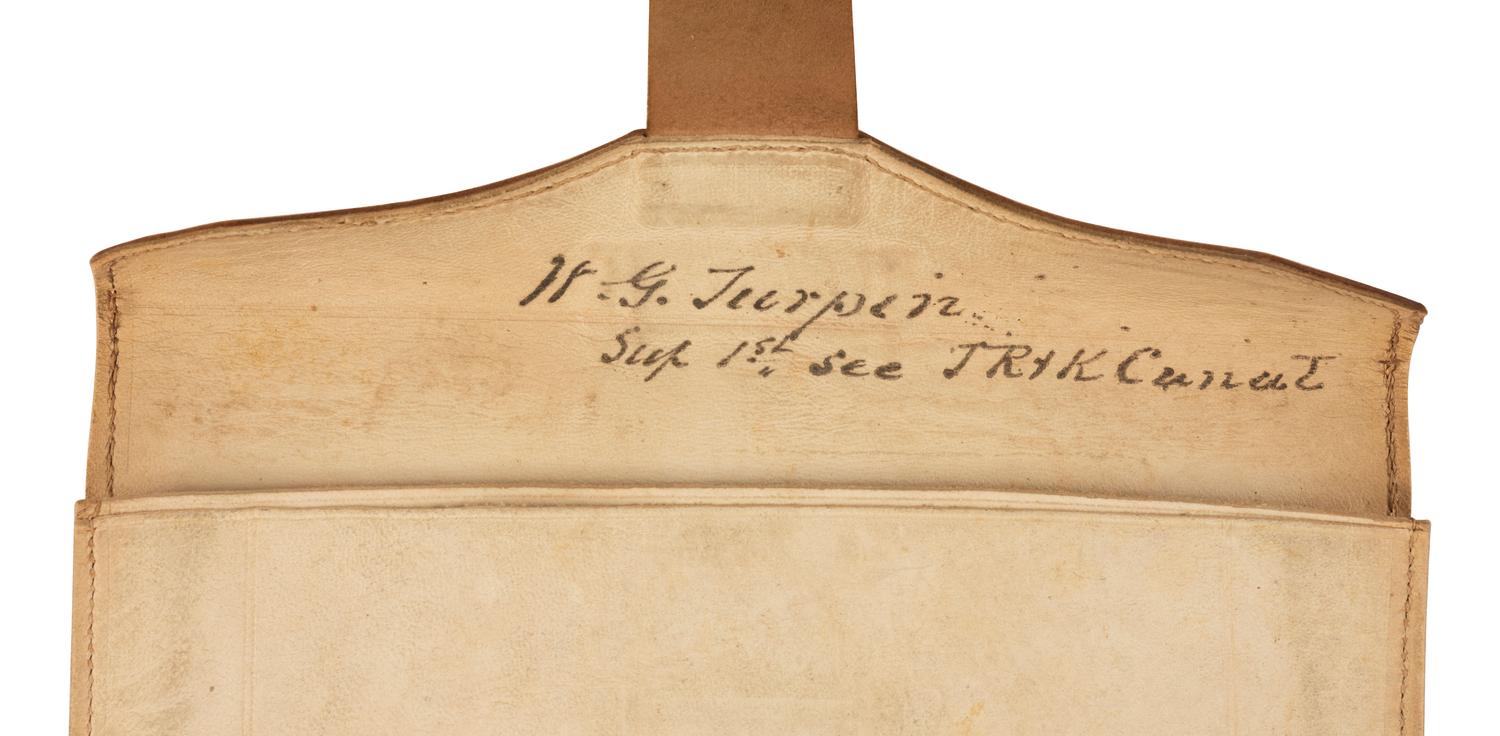 W. G. Turpin
Sup 1st see JR & K Canal